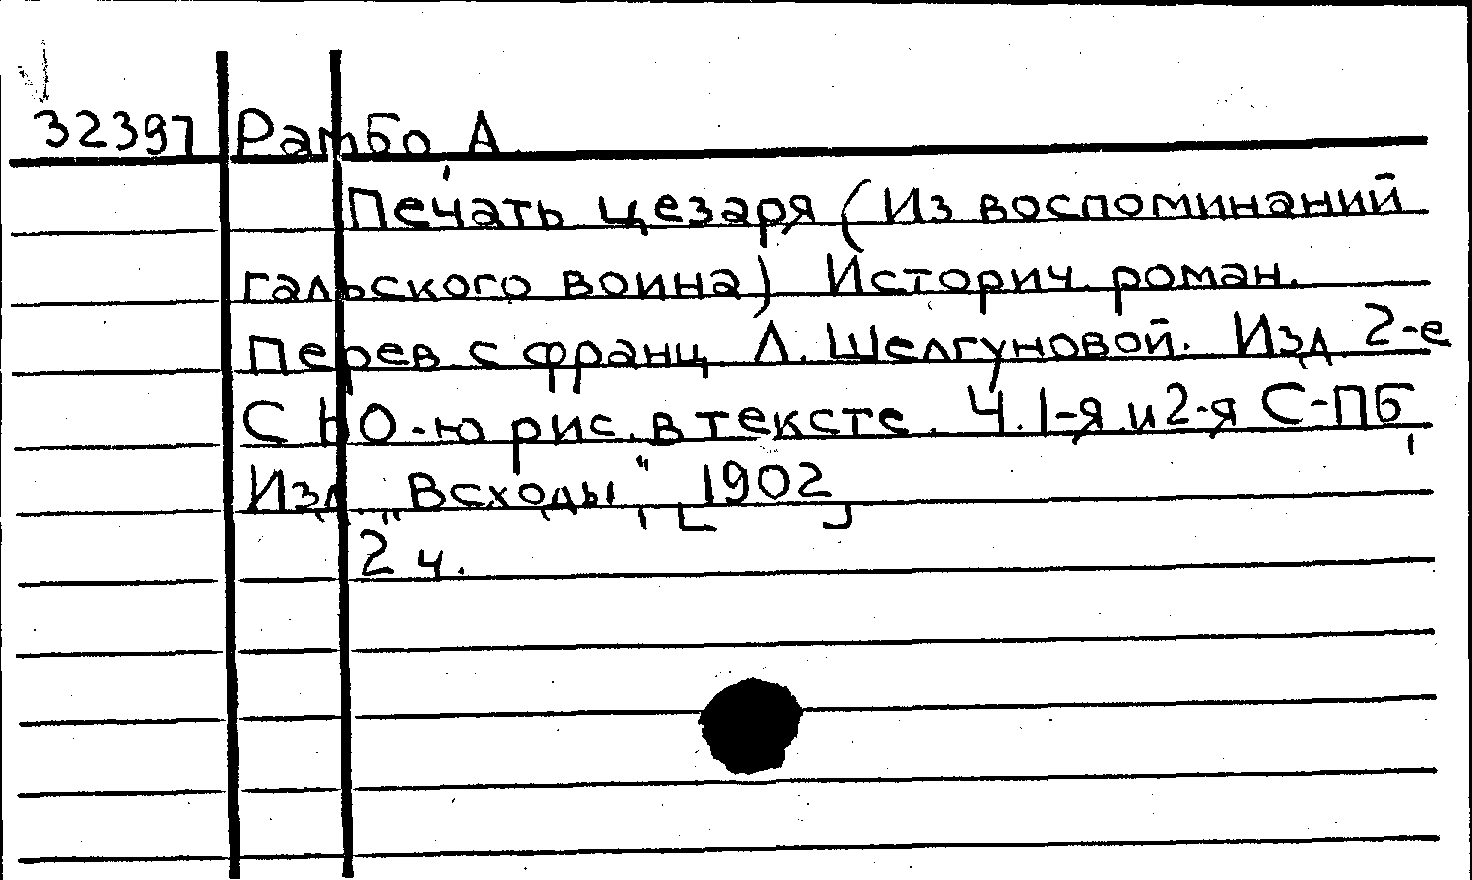 32397 Рамбо А.
Печать цезаря (Из воспоминаний
гальского воина) Историч. роман.
Перев. с франц. Л. Шелгуновой. Изд. 2-е
С 10-ю рис. в тексте. Ч. 1-я и 2-я С-ПБ,
Изд. „Всходы", [1902]
2 ч.